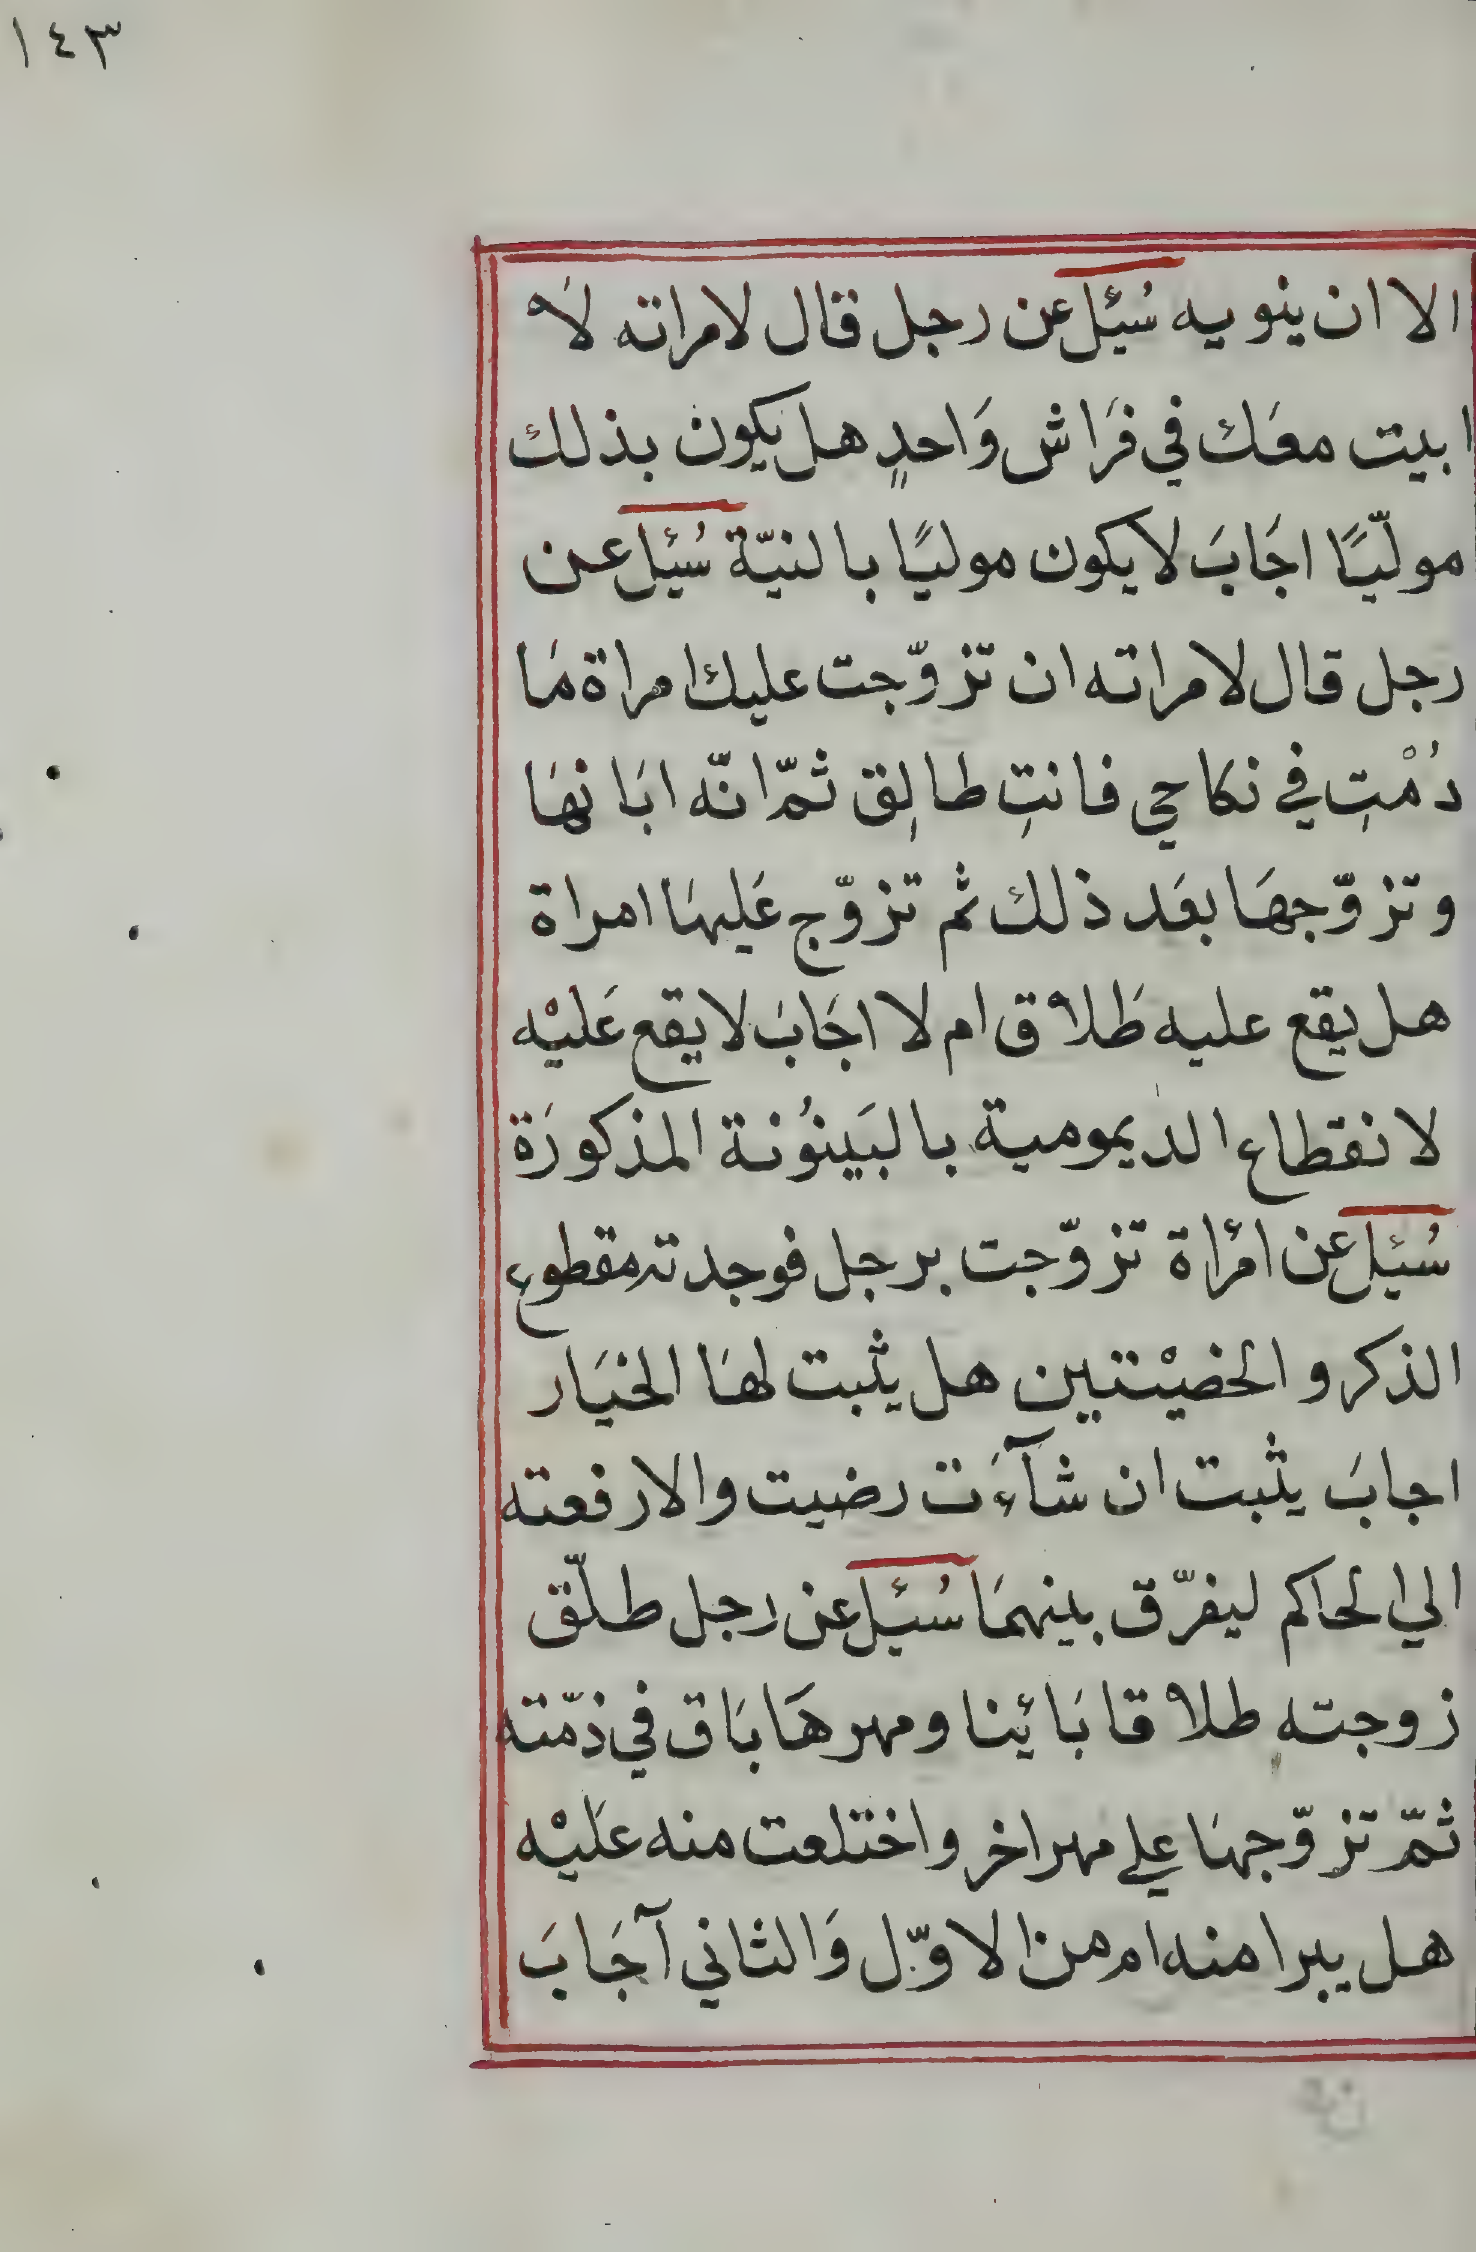 ١٤٣
الا ان ينويه سُئِل عن رجل قال لامراته لا
ابيت معَك في فرَاش وَاحدٍ هل يكون بذلك
مولّيًا اجَابَ لا يكون موليًا بالنيّة سُئِل عن
رجل قال لامراته ان تزوّجت عليك امراة مَا
دُمْتِ في نكاحي فانتِ طالِق ثمّ انّه ابَانهَا
وتزوّجهَا بعَد ذلك ثم تزوّج عَليهَا امراة
هل يقع عليه طَلاق ام لا اجَابَ لا يقع عَليْه
لانقطاع الديمومية بالبَينُونة المذكورَة
سُئِل عن امرُاة تزوّجت برجل فوجدته مقطوع
الذكر والخصيْتين هل يثبت لهَا الخيَار
اجابَ يثبت ان شآءَت رضيت والا رفعته
الي الحاكم ليفرّق بينهمَا سُئِل عن رجل طلّق
زوجته طلاقا بَائنا ومهرهَا بَاق في ذمّته
ثمّ تزوّجهَا علي مهر اخر واختلعت منه عَليْه
هل يبرا منه ام من الاوّل وَالثاني آجَابَ